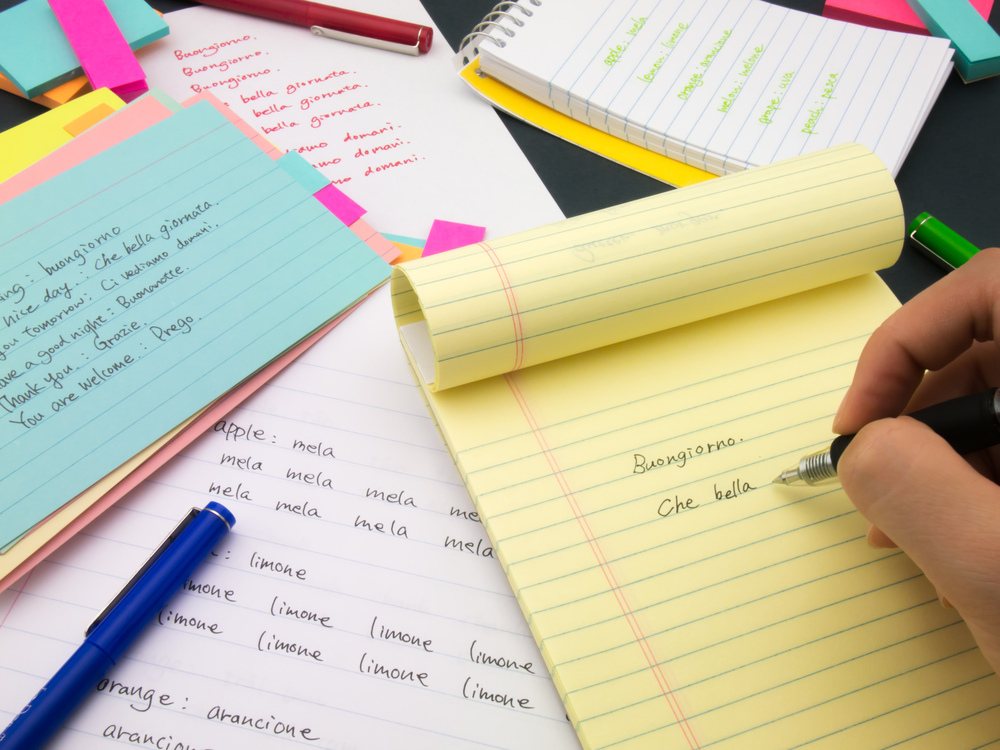 Buongiorno.
Buongiorno.
Buongiorno.
bella giornata.
bella giornata.
bella giornata.
domani.
domani.
domani.
apple : mela
lemon : limone
orange : arancione
melone
grape : uva
peach : pesca
buongiorno
nice day. : Che bella giornata.
you tomorrow : Ci vediamo domani.
a good night : Buonanotte.
Thank you. : Grazie.
You are welcome. : Prego.
apple : mela
mela mela mela
mela mela mela mela
: limone
limone limone limone
limone limone limone limone
orange : arancione
arancione
Buongiorno.
Che bella